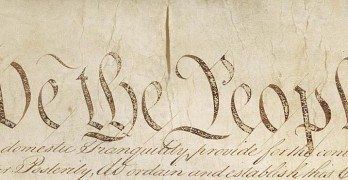 We the People
domestic Tranquility, provide for the com
r Posterity, do ordain and establish this C